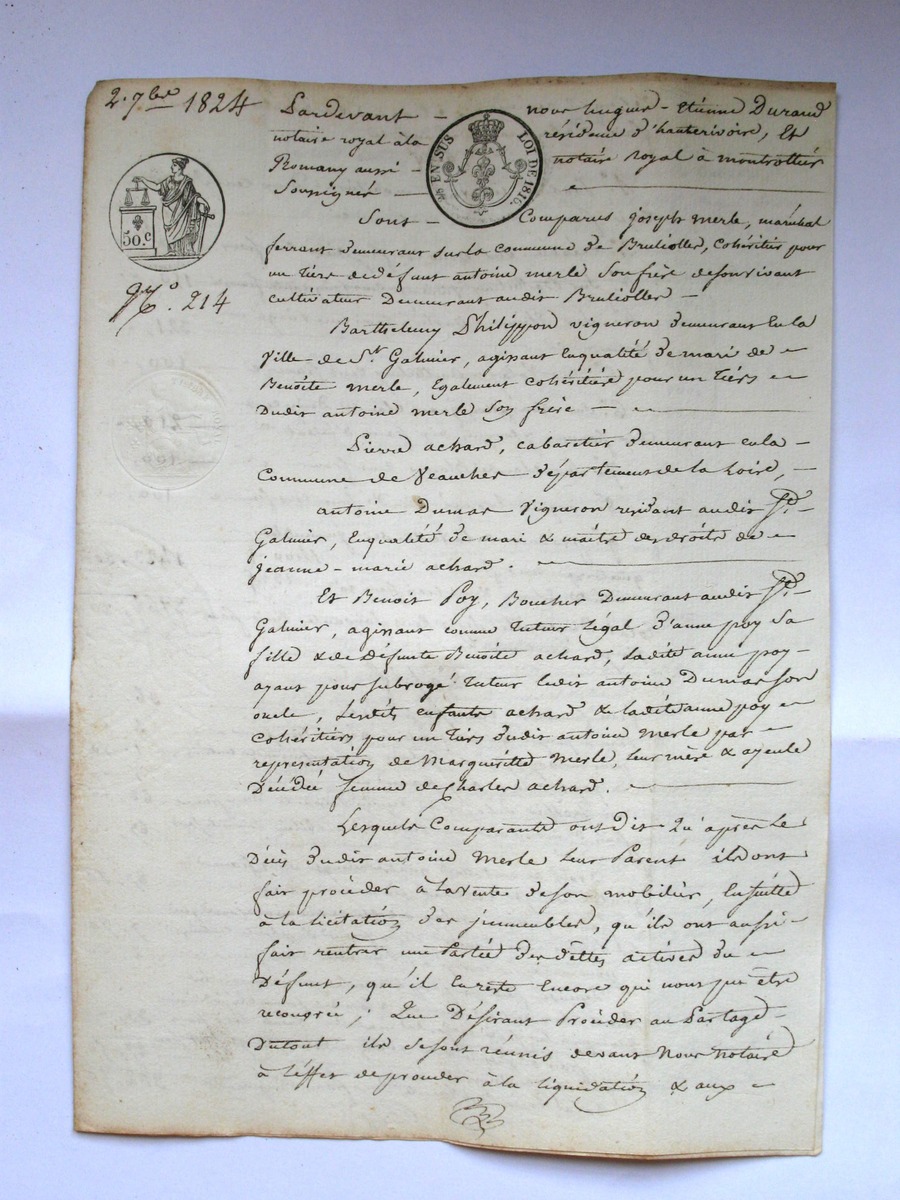 2. 7bre 1824
Pardevant - nous hugues - Etiénne Durand
notaire royal à la résidence d'hauterivoire, Et
Romany aussi - notaire royal à montrottier
Soussignés
EN SUS LOI DE 1816.
50.c
N.o 214
Sont - Comparus joseph merle, maréchal
ferrant demeurant sur la commune de Brulliolles, cohéritier pour
un tiers de défunt antoine merle son frère de son vivant
cultivateur Demeurant audit Brulliolles -
Barthelemy Philippon vigneron demeurant En la
ville de St. Galmier, agissant En qualité de mari de
Benoîte merle, Egalement cohéritière pour un tiers
Dudit antoine merle Son frère -
Pierre achard, cabaretier demeurant en la
Commune de Veauches département de la Loire, -
antoine Dumas Vigneron résidant audit St.
Galmier, En qualité de mari & maître des droits de
jeanne - marie achard.
Et Benoit Poy, Boucher Demeurant audit St.
Galmier, agissant comme tuteur légal d'anne poy Sa
fille & de défunte Benoîte achard, Ladite anne poy -
ayant pour subrogé tuteur ledit antoine Dumas son
oncle, Lesdits enfants achard & ladite anne poy
Cohéritiers pour un tiers dudit antoine merle par
représentation de Marguéritte Merle, leur mère & ayeule
Décédée femme de Charles achard.
Lesquels Comparants ont Dit Qu'après Le
Décès dudit antoine Merle Leur Parent ils ont
fait procéder à la vente de son mobilier, Ensuitte
à la licitation des jmmeubles, qu'ils ont aussi
fait rentrer une Partie des dettes actives du
Défunt, qu'il En reste Encore qui n'ont pu être
; Que Désirant Procéder au Partage
Du tout ils se sont réunis devant Nous notaire
à l'effet de procéder à la liquidation & aux